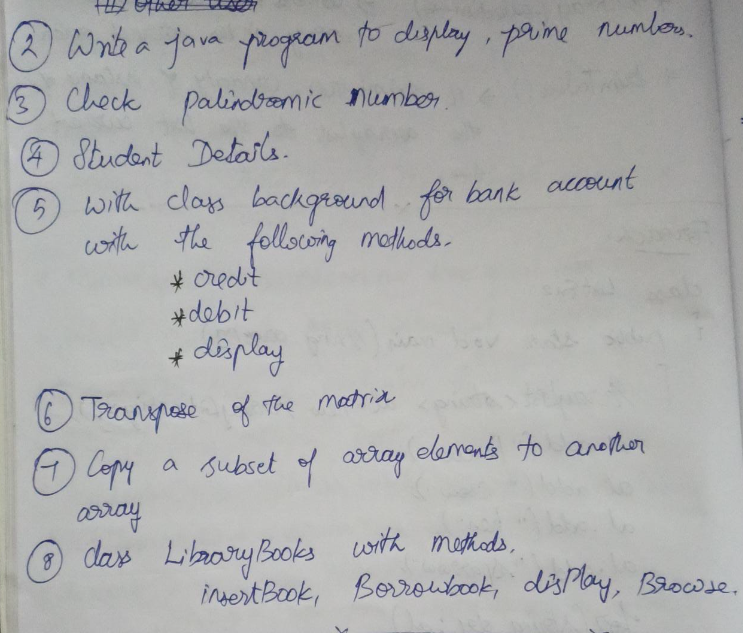 Other User
② Write a java program to display, prime numbers.
③ Check palindromic number.
④ Student Details.
⑤ with class background for bank account
with the following methods.
* credit
* debit
* display
⑥ Transpose of the matrix
⑦ Copy a subset of array elements to another
array
⑧ class LibraryBooks with methods.
insertBook, Borrowbook, display, Browse.